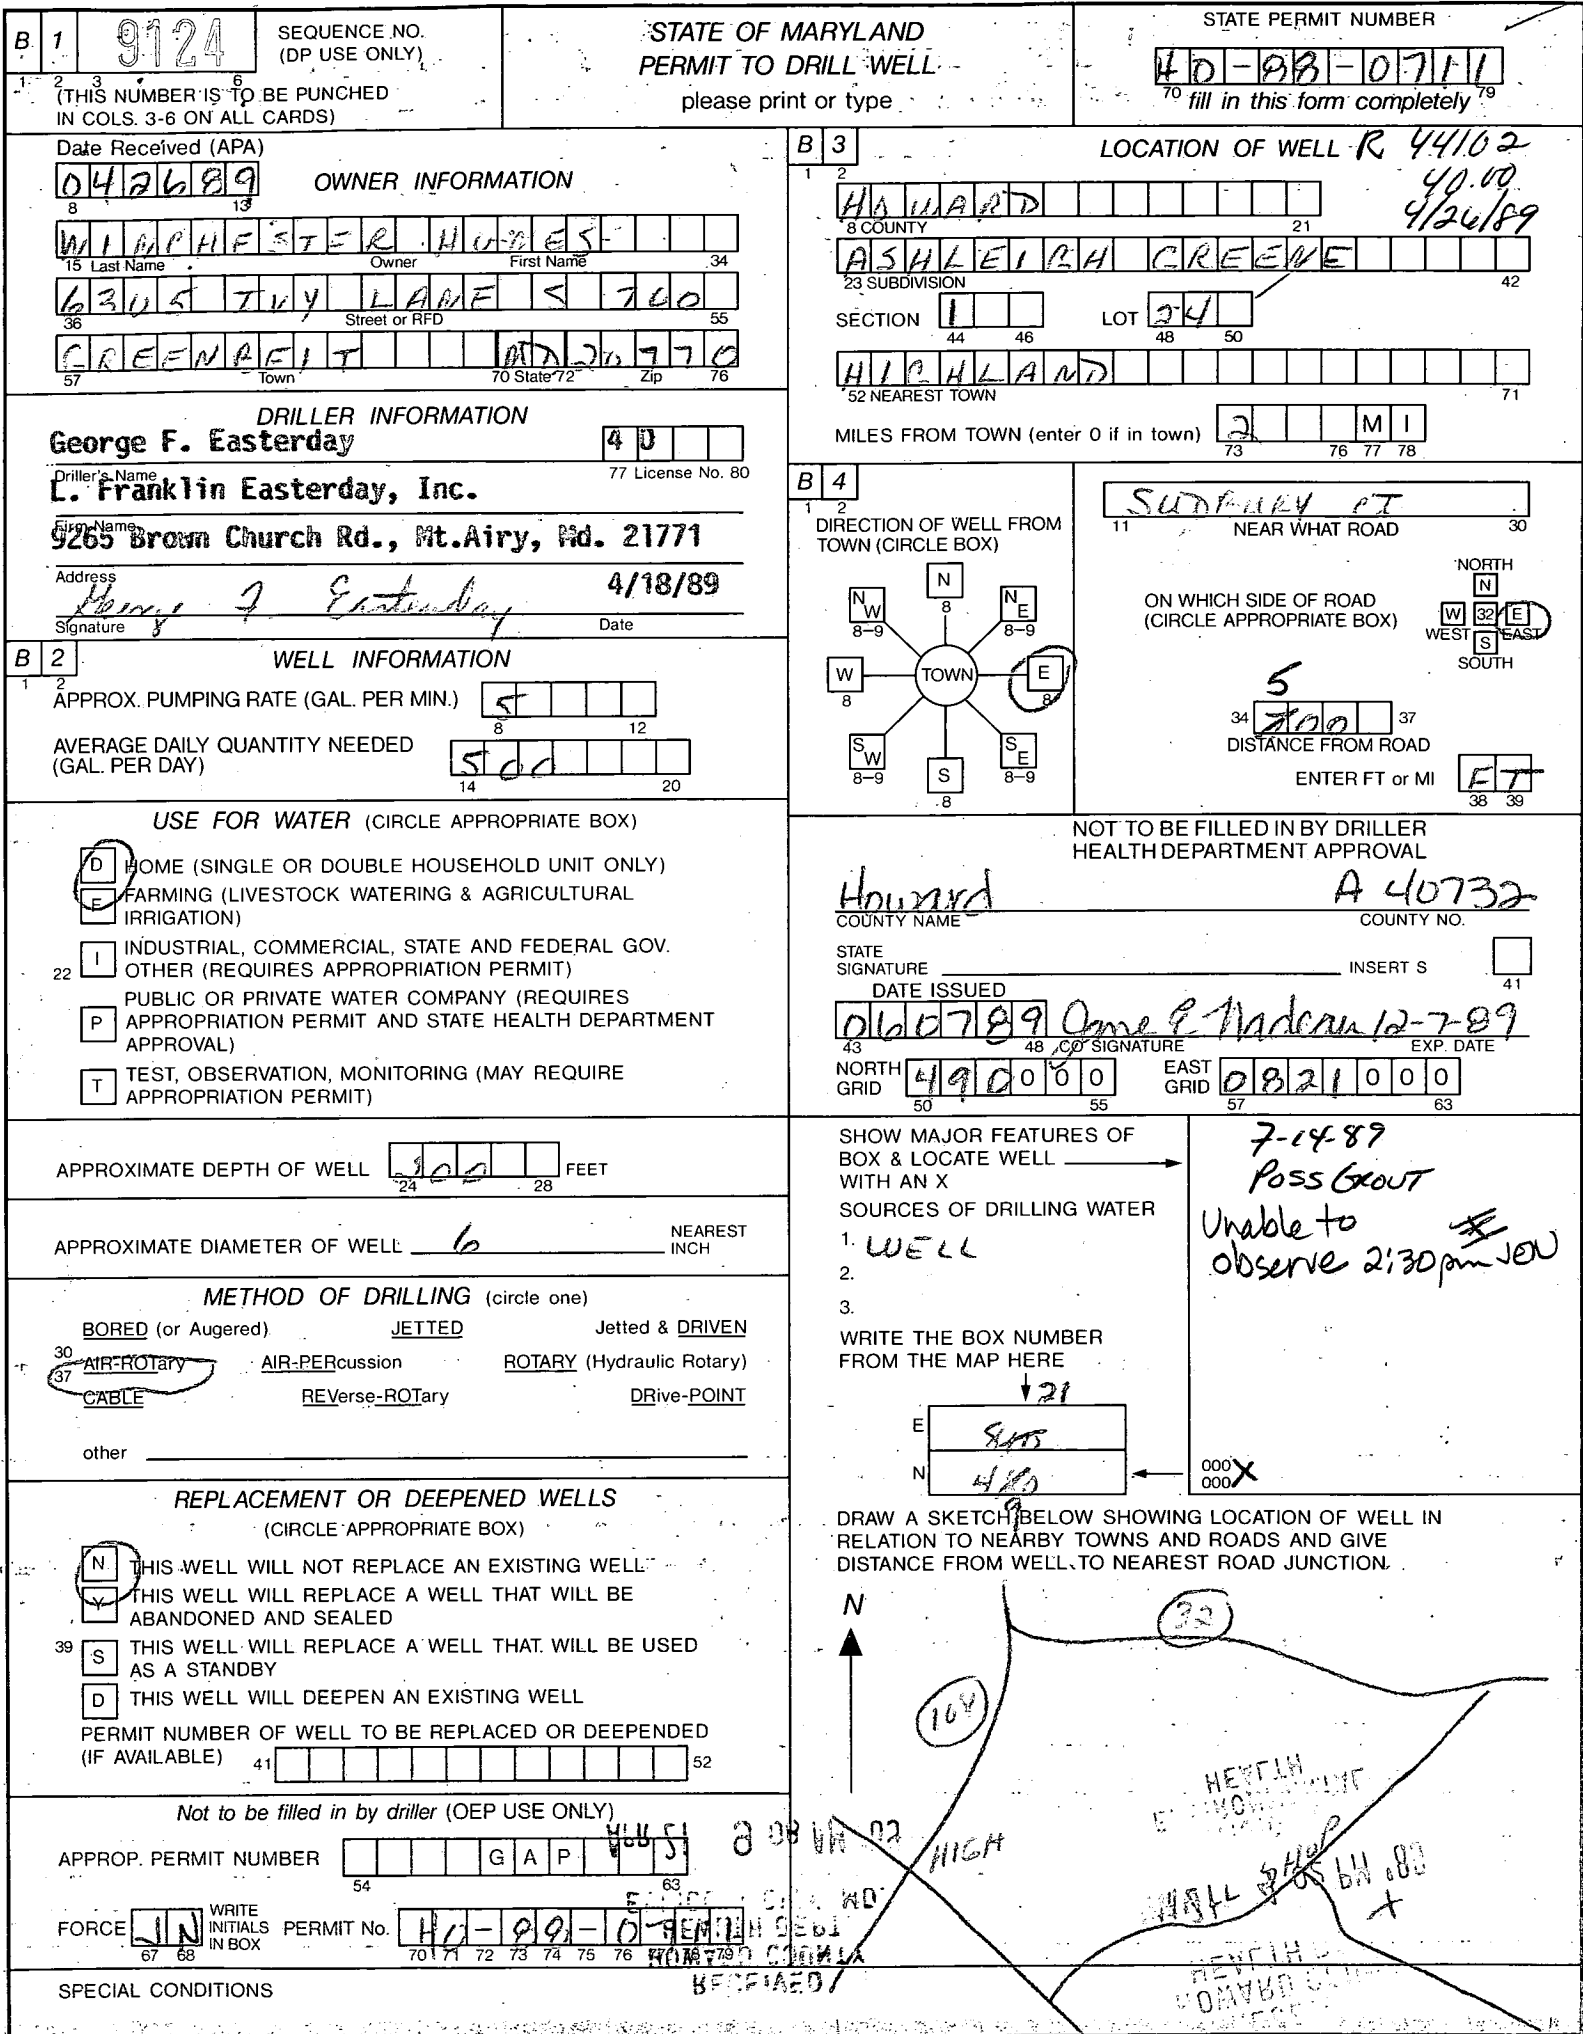 B 1 9124 SEQUENCE NO. (DP USE ONLY)
1 2 3 6
(THIS NUMBER IS TO BE PUNCHED
IN COLS. 3-6 ON ALL CARDS)
STATE OF MARYLAND
PERMIT TO DRILL WELL
please print or type
STATE PERMIT NUMBER
HO-88-0711
70 fill in this form completely 79
Date Received (APA)
042689
8 13
OWNER INFORMATION
WINCHESTER HOMES
15 Last Name Owner First Name 34
6305 IVY LANE S 760
36 Street or RFD 55
GREENBELT MD 20770
57 Town 70 State 72 Zip 76
DRILLER INFORMATION
George F. Easterday 40
Driller's Name 77 License No. 80
L. Franklin Easterday, Inc.
Firm Name
9265 Brown Church Rd., Mt.Airy, Md. 21771
Address
George F Easterday 4/18/89
Signature Date
B 2 WELL INFORMATION
1 2
APPROX. PUMPING RATE (GAL. PER MIN.) 5
8 12
AVERAGE DAILY QUANTITY NEEDED
(GAL. PER DAY) 500
14 20
USE FOR WATER (CIRCLE APPROPRIATE BOX)
D HOME (SINGLE OR DOUBLE HOUSEHOLD UNIT ONLY)
F FARMING (LIVESTOCK WATERING & AGRICULTURAL
IRRIGATION)
I INDUSTRIAL, COMMERCIAL, STATE AND FEDERAL GOV.
22 OTHER (REQUIRES APPROPRIATION PERMIT)
PUBLIC OR PRIVATE WATER COMPANY (REQUIRES
P APPROPRIATION PERMIT AND STATE HEALTH DEPARTMENT
APPROVAL)
T TEST, OBSERVATION, MONITORING (MAY REQUIRE
APPROPRIATION PERMIT)
APPROXIMATE DEPTH OF WELL 300 FEET
24 28
APPROXIMATE DIAMETER OF WELL 6 NEAREST
INCH
METHOD OF DRILLING (circle one)
BORED (or Augered) JETTED Jetted & DRIVEN
30 AIR-ROTary AIR-PERcussion ROTARY (Hydraulic Rotary)
37
CABLE REVerse-ROTary DRive-POINT
other
REPLACEMENT OR DEEPENED WELLS
(CIRCLE APPROPRIATE BOX)
N THIS WELL WILL NOT REPLACE AN EXISTING WELL
Y THIS WELL WILL REPLACE A WELL THAT WILL BE
ABANDONED AND SEALED
39 S THIS WELL WILL REPLACE A WELL THAT WILL BE USED
AS A STANDBY
D THIS WELL WILL DEEPEN AN EXISTING WELL
PERMIT NUMBER OF WELL TO BE REPLACED OR DEEPENDED
(IF AVAILABLE) 41 52
Not to be filled in by driller (OEP USE ONLY)
APPROP. PERMIT NUMBER G A P
54 63
FORCE JN WRITE INITIALS IN BOX PERMIT No. HO-88-0711
67 68 70 71 72 73 74 75 76 77 78 79
SPECIAL CONDITIONS
B 3 LOCATION OF WELL R 44102
1 2 40.00
HOWARD 4/26/89
8 COUNTY 21
ASHLEIGH GREENE
23 SUBDIVISION 42
SECTION 1 LOT 24
44 46 48 50
HIGHLAND
52 NEAREST TOWN 71
MILES FROM TOWN (enter 0 if in town) 2 M I
73 76 77 78
B 4
1 2
DIRECTION OF WELL FROM
TOWN (CIRCLE BOX)
N
8
NW NE
8-9 8-9
W TOWN E
8 8
SW SE
8-9 8-9
S
8
SUDBURY CT
11 NEAR WHAT ROAD 30
ON WHICH SIDE OF ROAD
(CIRCLE APPROPRIATE BOX)
NORTH
N
W 32 E
WEST EAST
S
SOUTH
5
34 200 37
DISTANCE FROM ROAD
ENTER FT or MI FT
38 39
NOT TO BE FILLED IN BY DRILLER
HEALTH DEPARTMENT APPROVAL
Howard A 40732
COUNTY NAME COUNTY NO.
STATE
SIGNATURE INSERT S
41
DATE ISSUED
060789 12-7-89
43 48 CO SIGNATURE EXP. DATE
NORTH GRID 490000 EAST GRID 0821000
50 55 57 63
SHOW MAJOR FEATURES OF
BOX & LOCATE WELL
WITH AN X
SOURCES OF DRILLING WATER
1. WELL
2.
3.
7-14-89
Poss Grout
Unable to
observe 2:30pm JEN
WRITE THE BOX NUMBER
FROM THE MAP HERE
21
E
N 480
9
000 X
000
DRAW A SKETCH BELOW SHOWING LOCATION OF WELL IN
RELATION TO NEARBY TOWNS AND ROADS AND GIVE
DISTANCE FROM WELL TO NEAREST ROAD JUNCTION.
N
32
108
HIGH
HALL SHOP
X
HEALTH
HEALTH DEPT
HOWARD COUNTY
RECEIVED